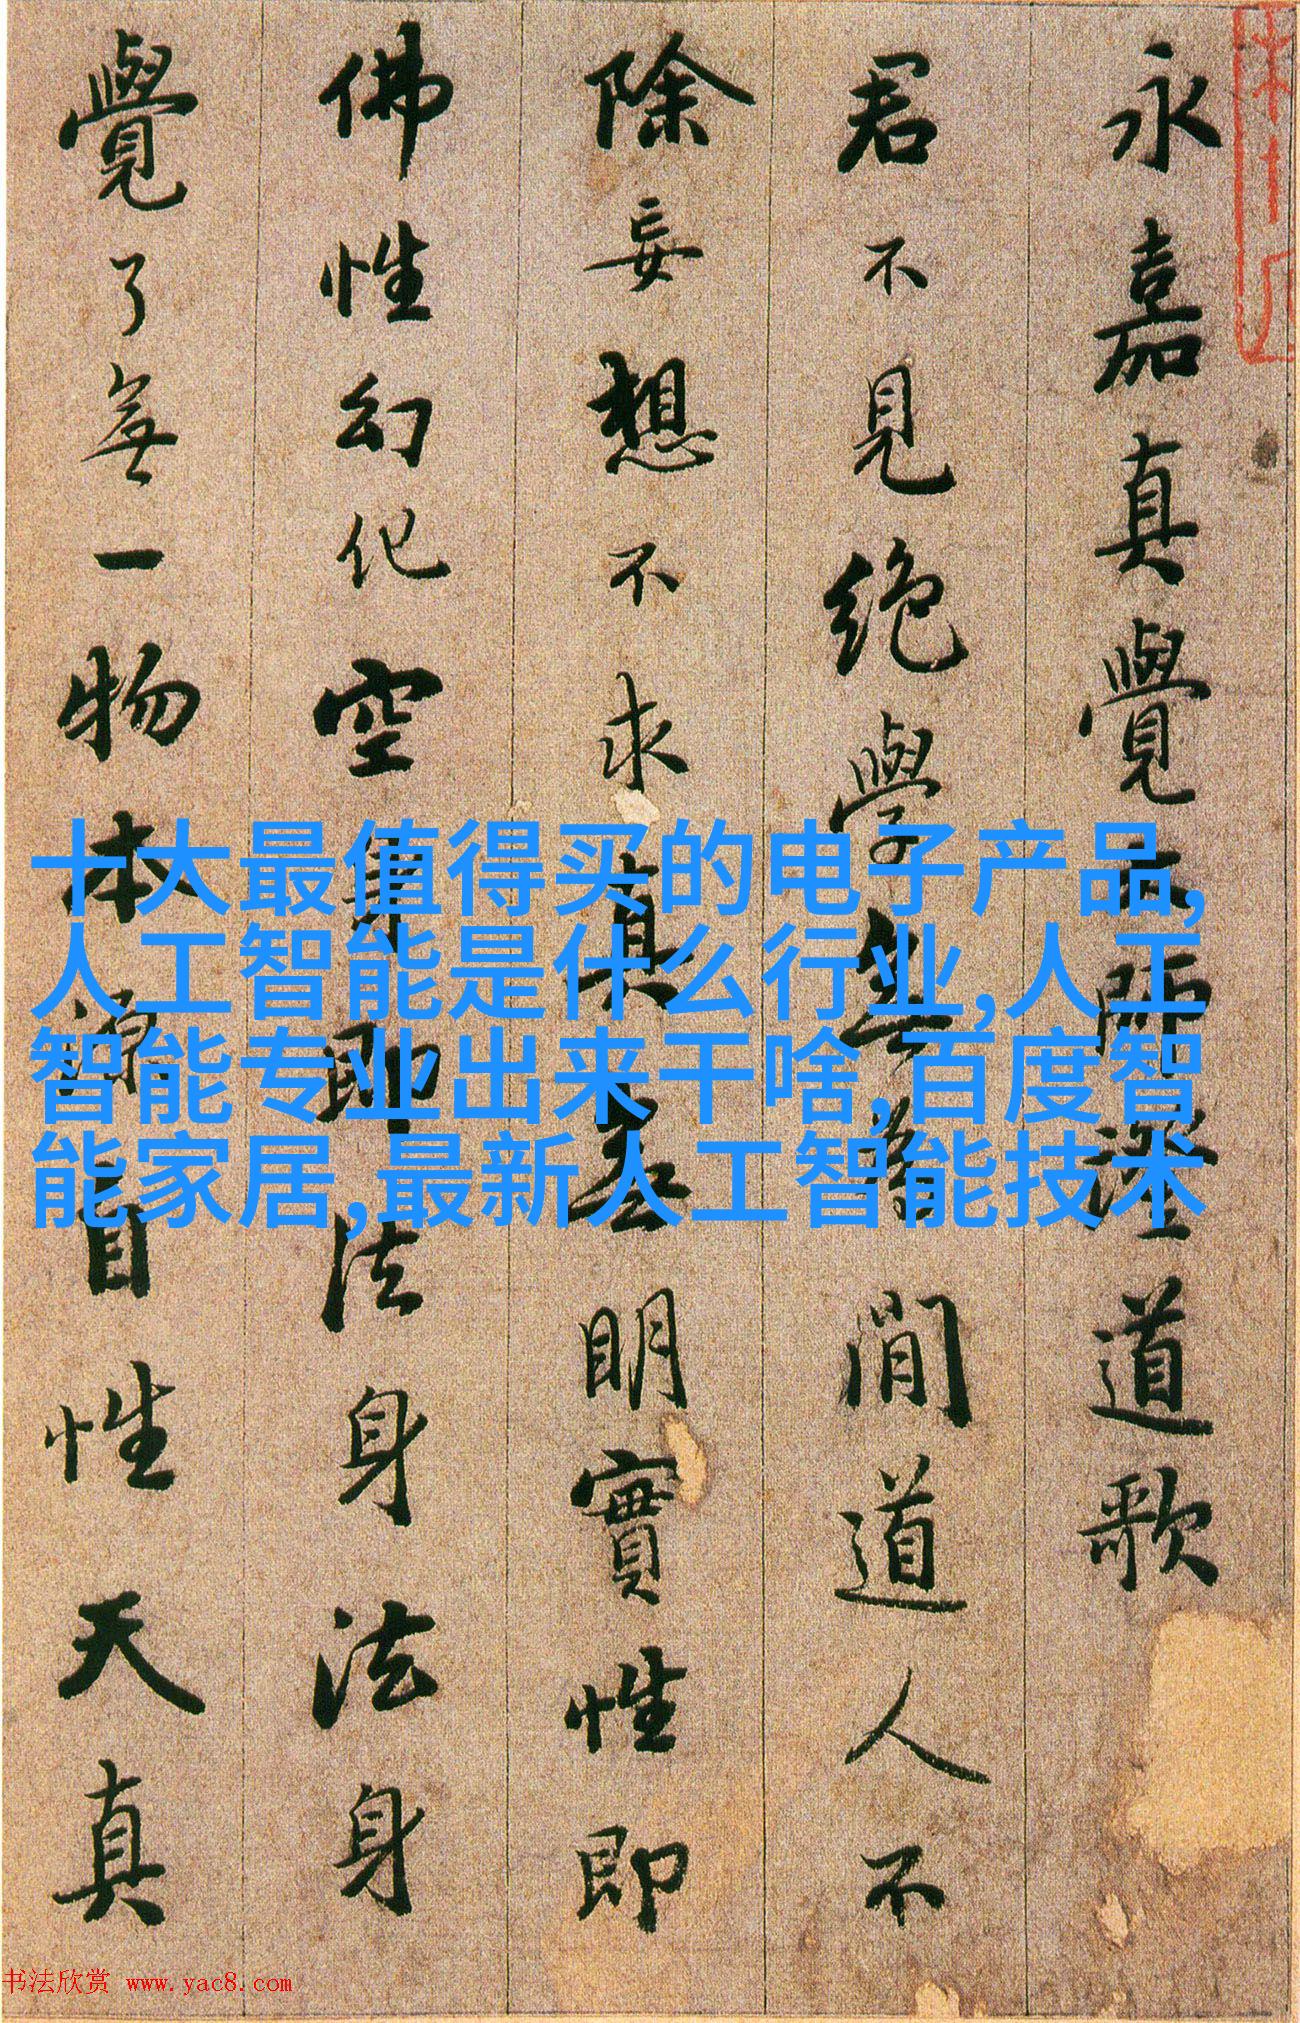 永嘉真覺大師澄道歌
君不見絶學無為閒道人不
除妄想不求真無明實性即
佛性幻化空身即法身法身
覺了無一物本源自性天真
十大最值得买的电子产品,
人工智能是什么行业,人工
智能专业出来干啥,百度智
能家居,最新人工智能技术
书法欣赏 www.yac8.com